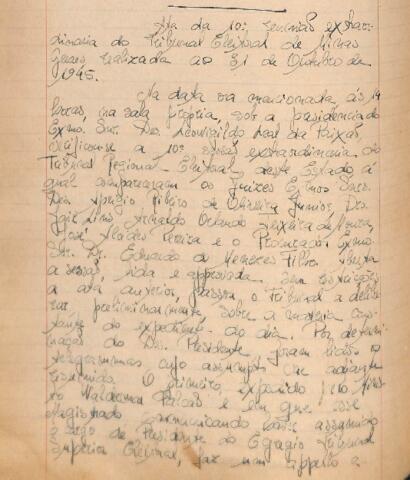 Ata da 10ª reunião extraor-
dinaria do Tribunal Eleitoral de Minas
Geraes realizada ao 31 de Outubro de
1945.
Na data ora mencionada, ás 14
horas, na sala propria, sob a presidencia do
Exmo. Snr. Des. Leovigildo Leal da Paixão,
verificou-se a 10ª sessão extraordinaria do
Tribunal Regional Eleitoral, deste Estado, á
qual compareceram os Juizes Exmos. Snrs.
Des. Ribeiro de Oliveira Junior, Drs.
José Lins, Orlando Teixeira de Moura,
José Alcides Pereira e o Procurador Exmo.
Snr. Dr. Eduardo de Menezes Filho. Aberta
a sessão, lida e approvada, sem
a ata anterior, passou o Tribunal a delibe-
rar preliminarmente, sobre a materia cons-
tante do expediente do dia. Por determi-
nação do Des. Presidente foram lidos os
telegrammas cujo assumpto vae adiante
resumido. O primeiro, expedido pelo Minis-
tro Waldemar Falcão e em que esse
Magistrado communicando haver assumido
o cargo de Presidente do Egregio Tribunal
Superior Eleitoral, faz um appello a